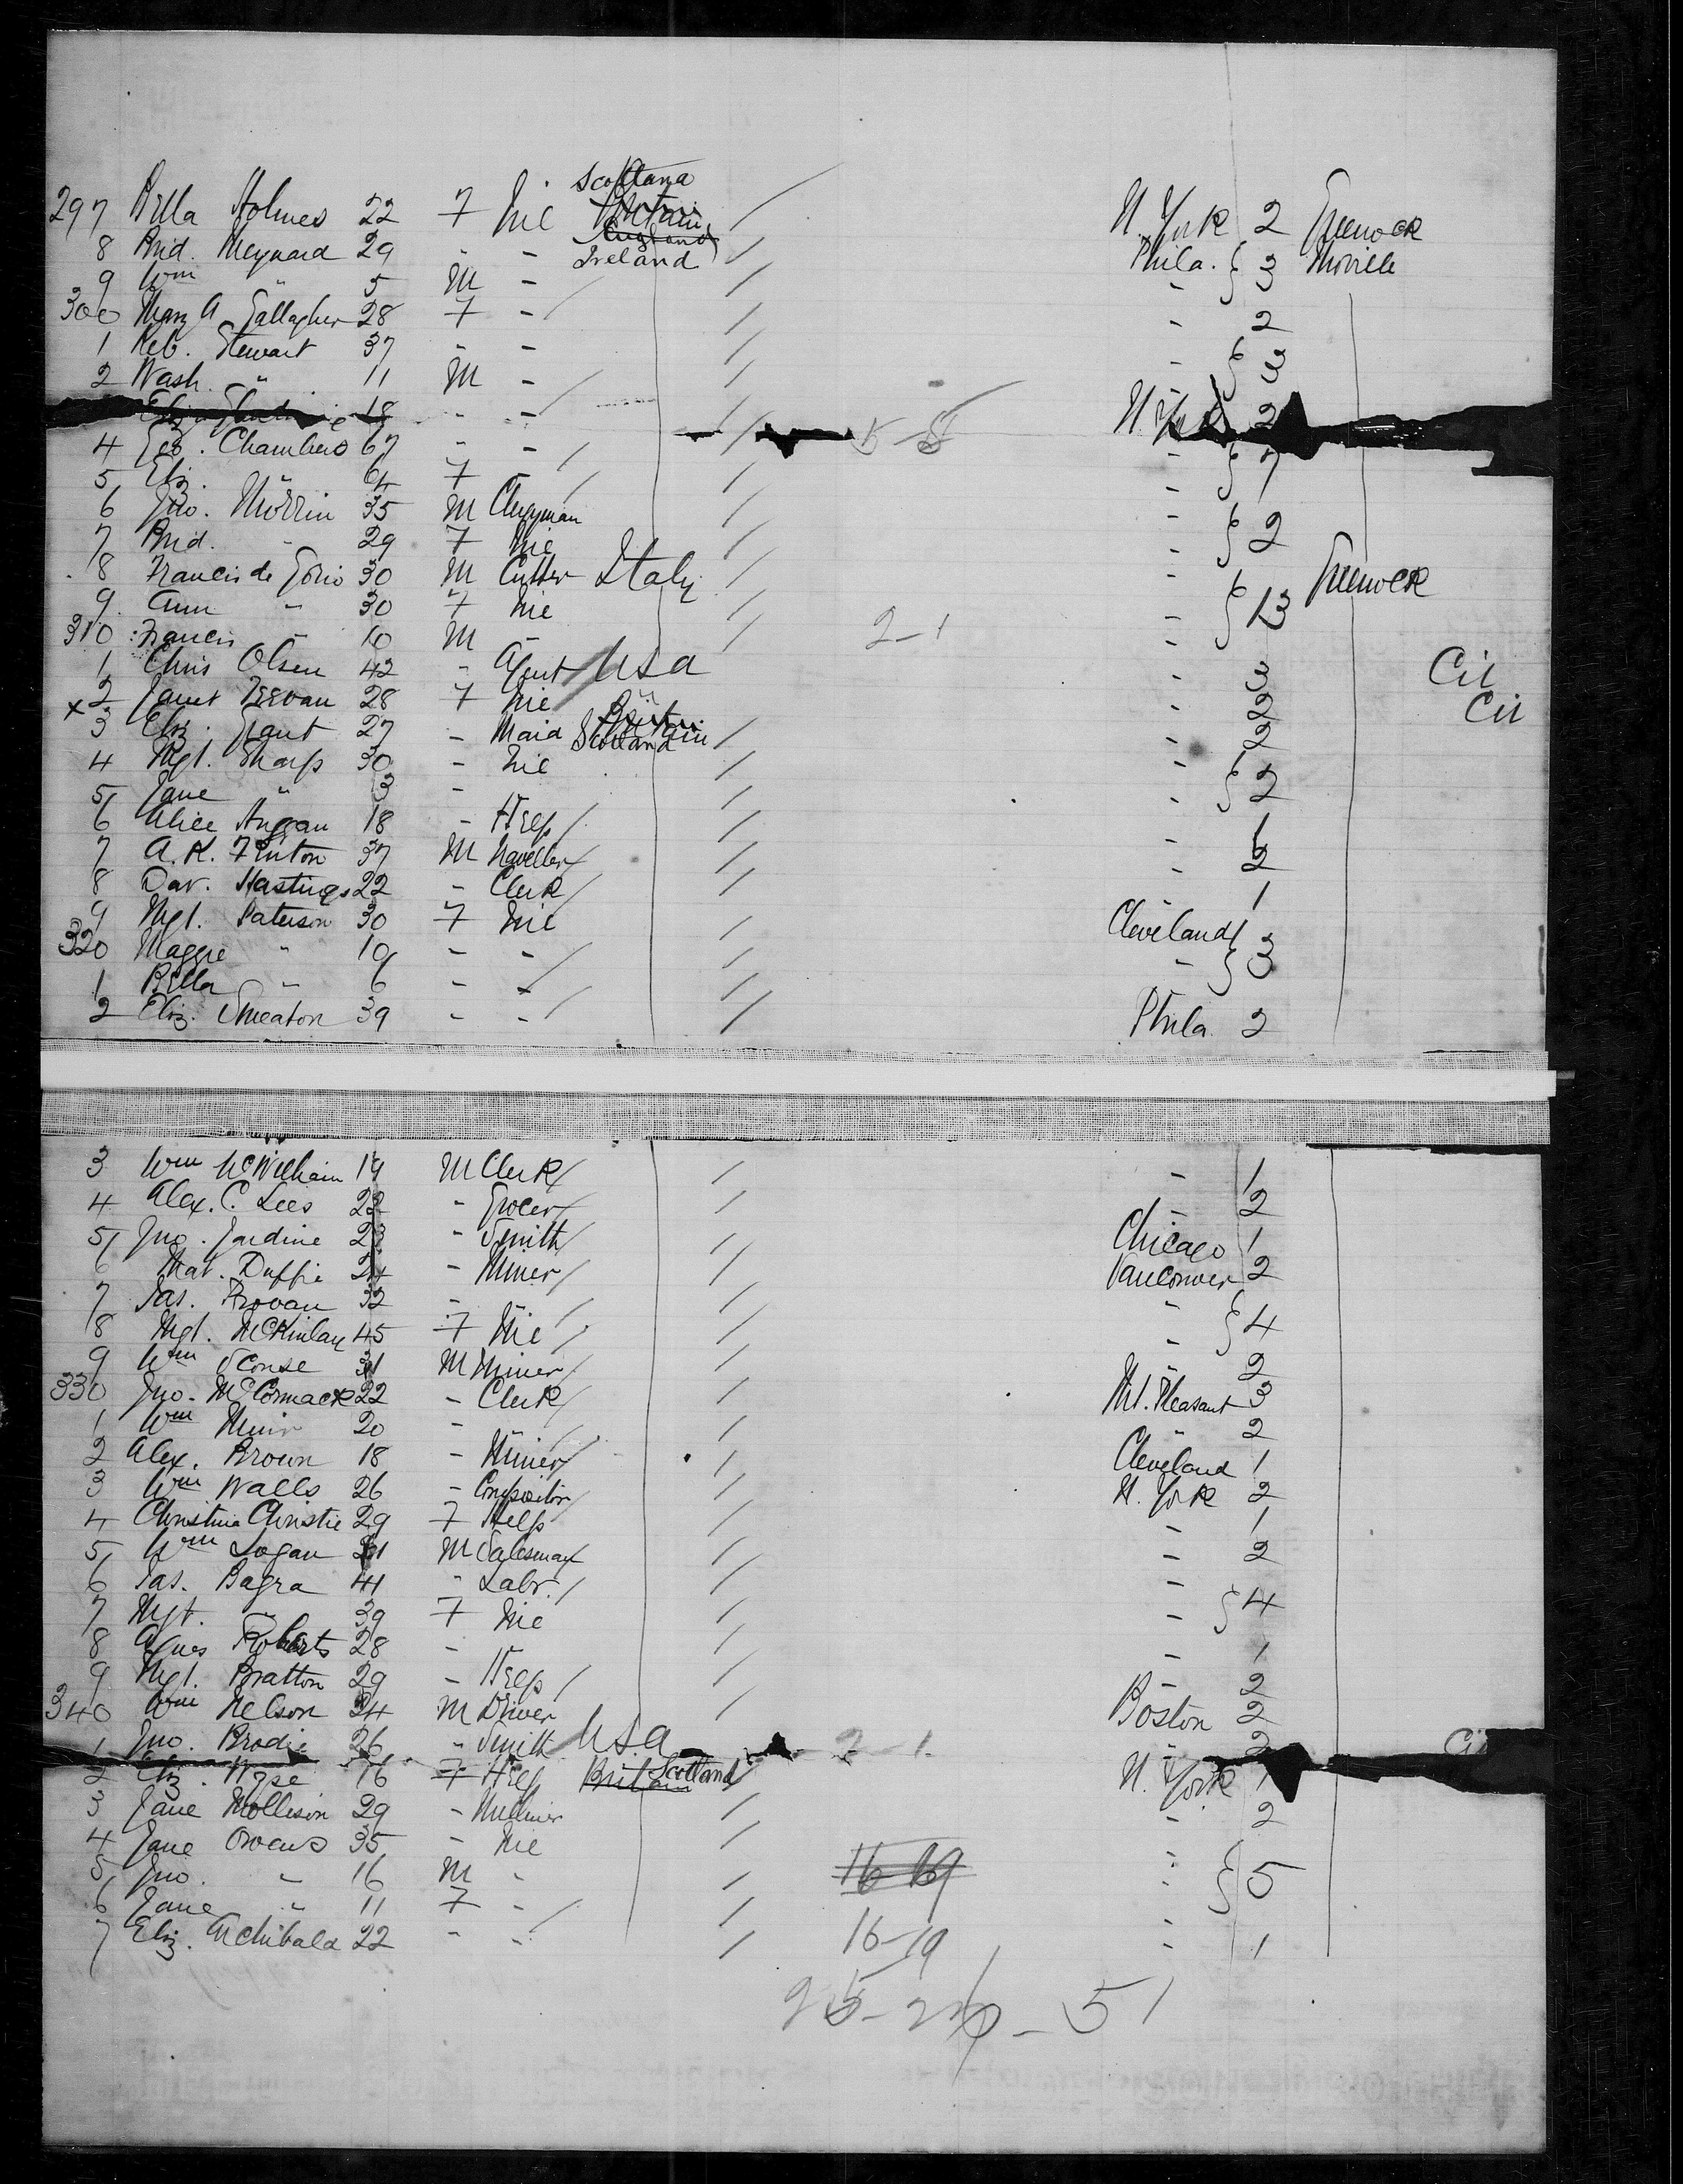 297 Bella Holmes 22 F Nil Scotland Britain England / N. York 2 Greenock
8 Brid. Meynard 29 " - Ireland / Phila. 3 Moville
9 Wm " 5 M - / -
300 Mary A Gallagher 28 F - / - 2
1 Reb. Stewart 37 - - / - 3
2 Wash. " 11 M - / -
18 - - / N. York 2
4 Geo. Chambers 67 - - / 5-8 - 7
5 Eliz. " 64 F - / -
6 Jno. Morrin 35 M Clergyman / - 2
7 Brid. " 29 F Nil / -
8 Francis de Gorio 30 M Cutter Italy / - 3 Greenock
9 Ann " 30 F Nil / -
310 Francis " 10 M - / 2-1 -
1 Chris Olsen 42 - Agent USA - 3 Cit
x 2 Janet 28 F Nil " - 2 Cit
3 Eliz. Grant 27 - Maid Britain Scotland / - 2
4 Mgt. Sharp 30 - Nil / - 2
5 Jane " 3 - / -
6 Alice 18 - Help / - 1
7 A. K. Finton 37 M Traveller / - 2
8 Dav. Hastings 22 - Clerk / - 1
9 Mgt. Paterson 30 F Nil / Cleveland 3
320 Maggie " 10 - - / -
1 Bella " 6 - - /
2 Eliz. Smeaton 39 - - / Phila. 2
3 Wm McWilliam 19 M Clerk / - 1
4 Alex. C. Lees 22 - Grocer / - 2
5 Jno. Jardine 23 - Smith / Chicago 1
6 Mat. Duffie 24 - Miner / Vancouver 2
7 Jas. Provan 32 - " / - 4
8 Mgt. McKinlay 45 F Nil / -
9 Wm Sconse 31 M Miner / " 2
330 Jno. McCormack 22 - Clerk / Mt. Pleasant 3
1 Wm Muir 20 - " / " 2
2 Alex. Brown 18 - Miner / Cleveland 1
3 Wm Walls 26 - Compositor / N. York 2
4 Christina Christie 29 F Help / - 1
5 Wm Logan 21 M Salesman / - 2
6 Jas. Bagra 41 - Labr. / - 4
7 Mgt. " 39 F Nil / -
8 Agnes Roberts 28 - " / - 1
9 Mgt. Bratton 29 - Help / - 2
340 Wm Nelson 34 M Driver / Boston 2
1 Jno. Brodie 26 - Smith USA 2-1 - 2
2 Eliz. Wyse 16 F Help Britain Scotland / N. York 1
3 Jane Mollison 29 - Milliner / - 2
4 Jane Owens 35 - Nil / - 5
5 Jno. " 16 M - / 16-19 -
6 Jane " 11 F - / -
7 Eliz. Archibald 22 - - / 16-19 - 1
25-26-51